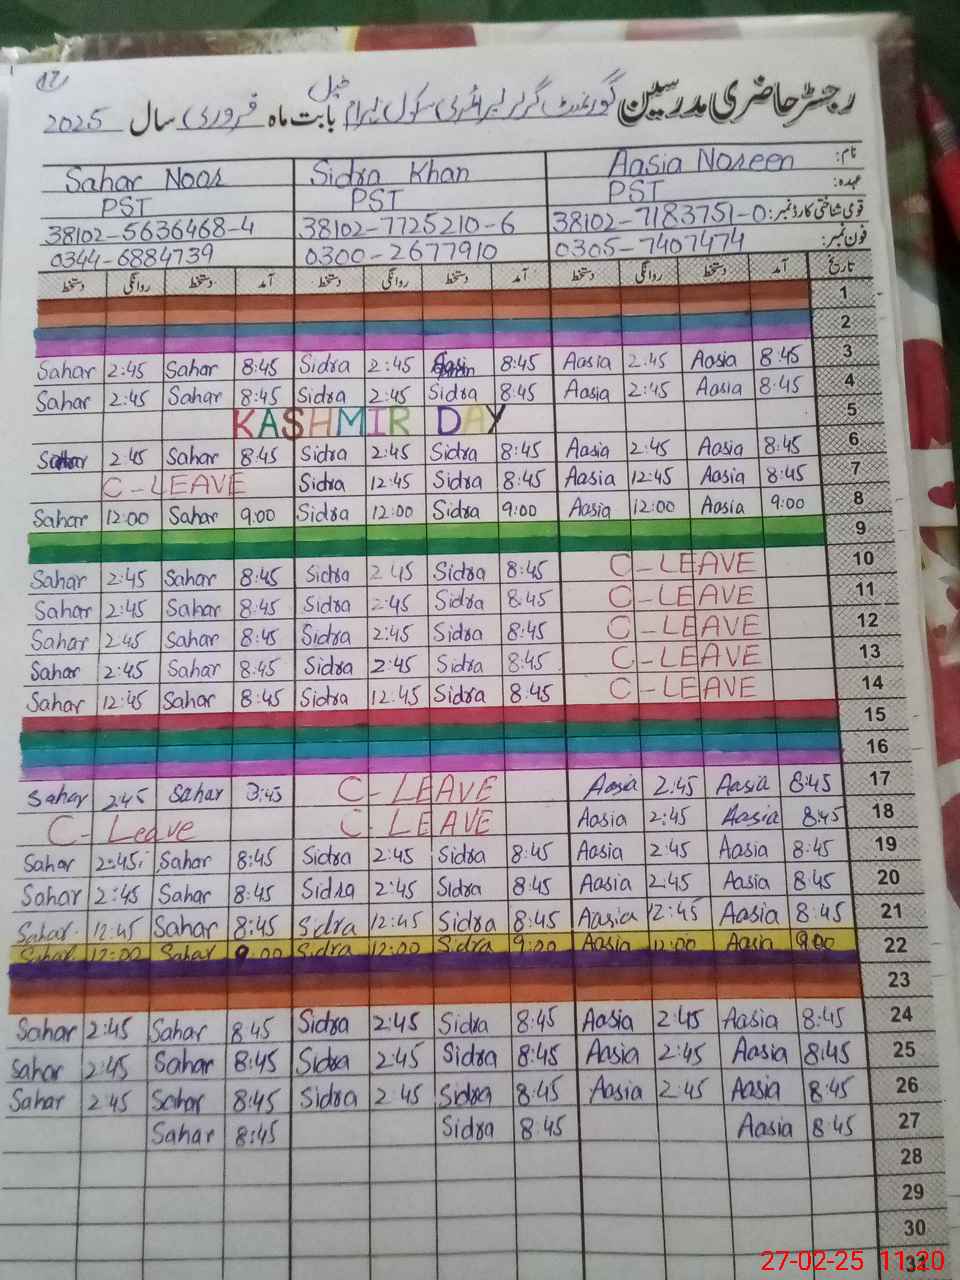 12
رجسٹر حاضری مدرسین گورنمنٹ گرلز پرائمری سکول ٹبل بابت ماہ فروری سال 2025
Sahar Noor Sidra Khan Aasia Noreen نام:
PST PST PST عہدہ:
38102-5636468-4 38102-7725210-6 38102-7183751-0 قومی شناختی کارڈ نمبر:
0344-6884739 0300-2677910 0305-7407474 فون نمبر:
دستخط روانگی دستخط آمد دستخط روانگی دستخط آمد دستخط روانگی دستخط آمد تاریخ
1
2
Sahar 2:45 Sahar 8:45 Sidra 2:45 8:45 Aasia 2:45 Aasia 8:45 3
Sahar 2:45 Sahar 8:45 Sidra 2:45 Sidra 8:45 Aasia 2:45 Aasia 8:45 4
KASHMIR DAY 5
Sahar 2:45 Sahar 8:45 Sidra 2:45 Sidra 8:45 Aasia 2:45 Aasia 8:45 6
C-LEAVE Sidra 12:45 Sidra 8:45 Aasia 12:45 Aasia 8:45 7
Sahar 12:00 Sahar 9:00 Sidra 12:00 Sidra 9:00 Aasia 12:00 Aasia 9:00 8
9
Sahar 2:45 Sahar 8:45 Sidra 2:45 Sidra 8:45 C-LEAVE 10
Sahar 2:45 Sahar 8:45 Sidra 2:45 Sidra 8:45 C-LEAVE 11
Sahar 2:45 Sahar 8:45 Sidra 2:45 Sidra 8:45 C-LEAVE 12
Sahar 2:45 Sahar 8:45 Sidra 2:45 Sidra 8:45 C-LEAVE 13
Sahar 12:45 Sahar 8:45 Sidra 12:45 Sidra 8:45 C-LEAVE 14
15
16
Sahar 2:45 Sahar 3:45 C-LEAVE Aasia 2:45 Aasia 8:45 17
C-Leave C-LEAVE Aasia 2:45 Aasia 8:45 18
Sahar 2:45 Sahar 8:45 Sidra 2:45 Sidra 8:45 Aasia 2:45 Aasia 8:45 19
Sahar 2:45 Sahar 8:45 Sidra 2:45 Sidra 8:45 Aasia 2:45 Aasia 8:45 20
Sahar 12:45 Sahar 8:45 Sidra 12:45 Sidra 8:45 Aasia 12:45 Aasia 8:45 21
Sahar 12:00 Sahar 9:00 Sidra 12:00 Sidra 9:00 Aasia 12:00 Aasia 9:00 22
23
Sahar 2:45 Sahar 8:45 Sidra 2:45 Sidra 8:45 Aasia 2:45 Aasia 8:45 24
Sahar 2:45 Sahar 8:45 Sidra 2:45 Sidra 8:45 Aasia 2:45 Aasia 8:45 25
Sahar 2:45 Sahar 8:45 Sidra 2:45 Sidra 8:45 Aasia 2:45 Aasia 8:45 26
Sahar 8:45 Sidra 8:45 Aasia 8:45 27
28
29
30
31
27-02-25 11:20